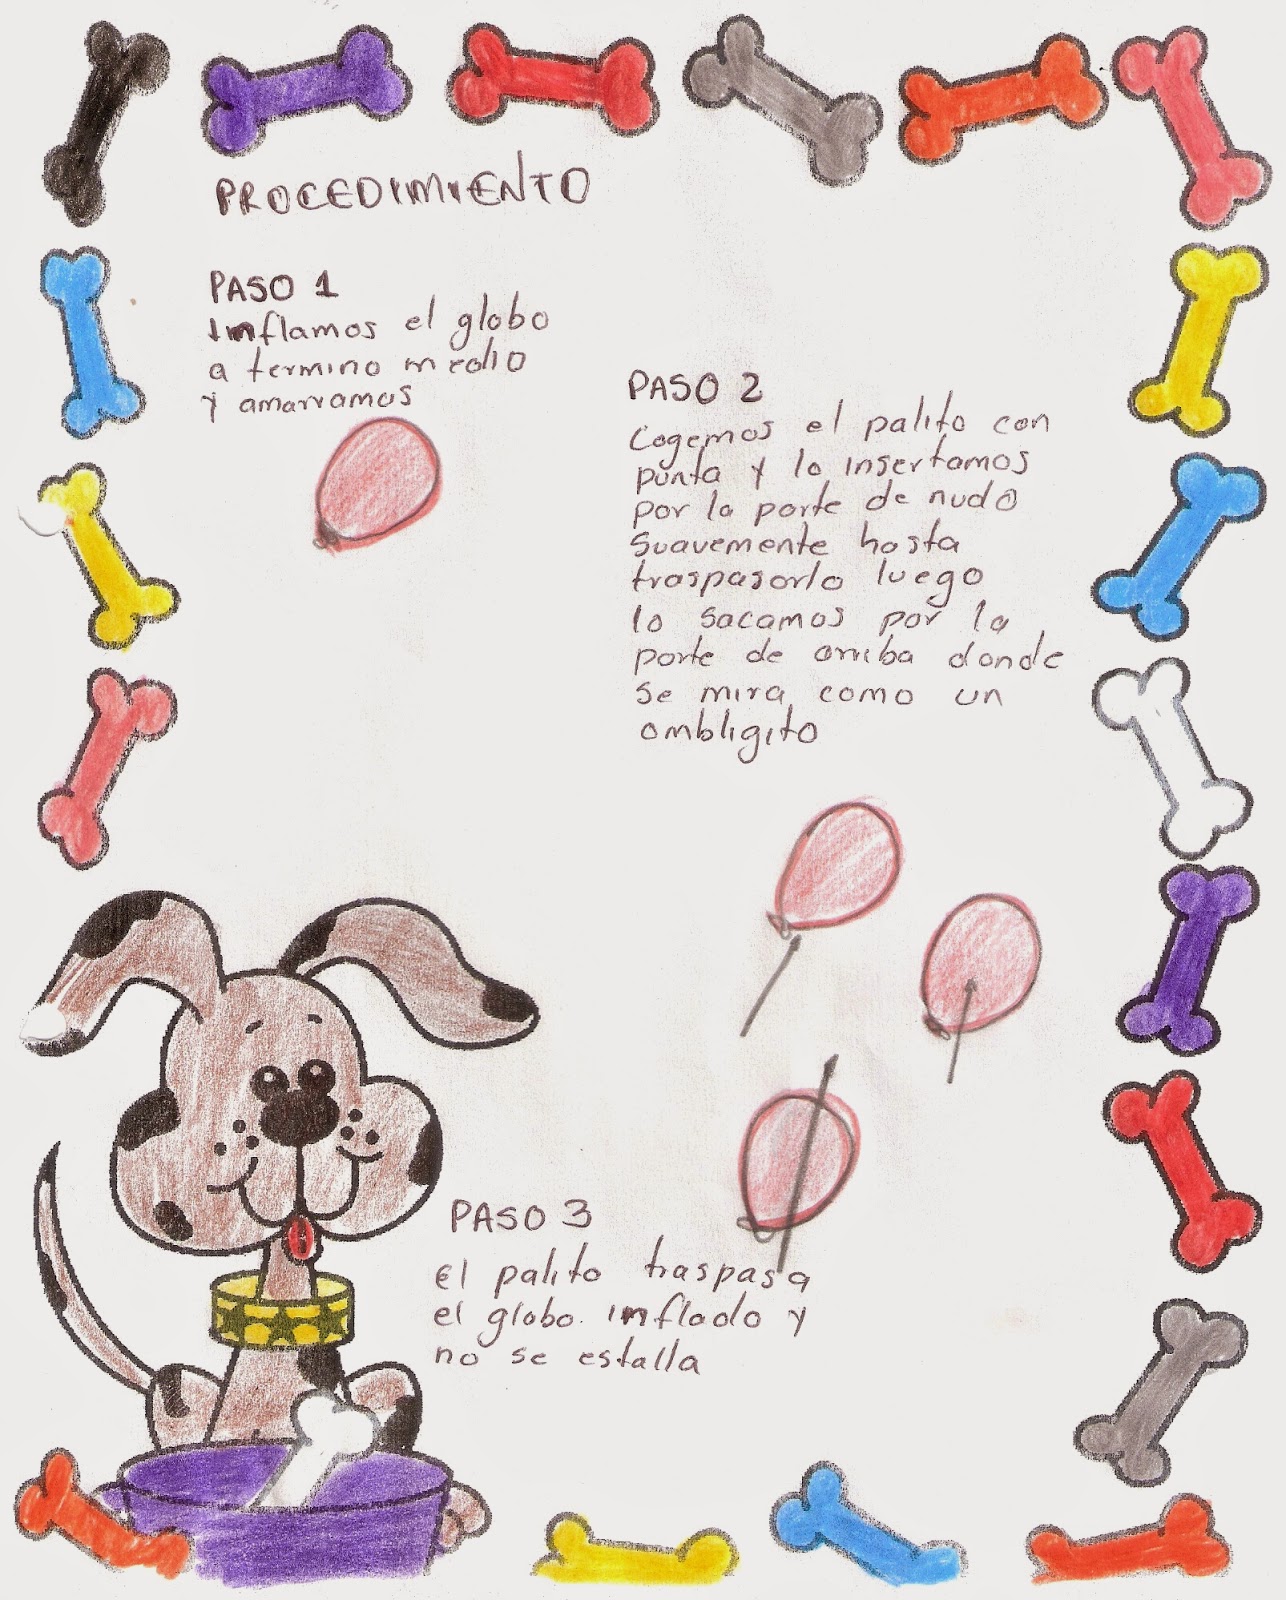 PROCEDIMIENTO
PASO 1
inflamos el globo
a termino medio
y amarramos
PASO 2
Cogemos el palito con
punta y lo insertamos
por la parte de nudo
suavemente hasta
traspasarlo luego
lo sacamos por la
parte de arriba donde
se mira como un
ombligito
PASO 3
El palito traspasa
el globo inflado y
no se estalla